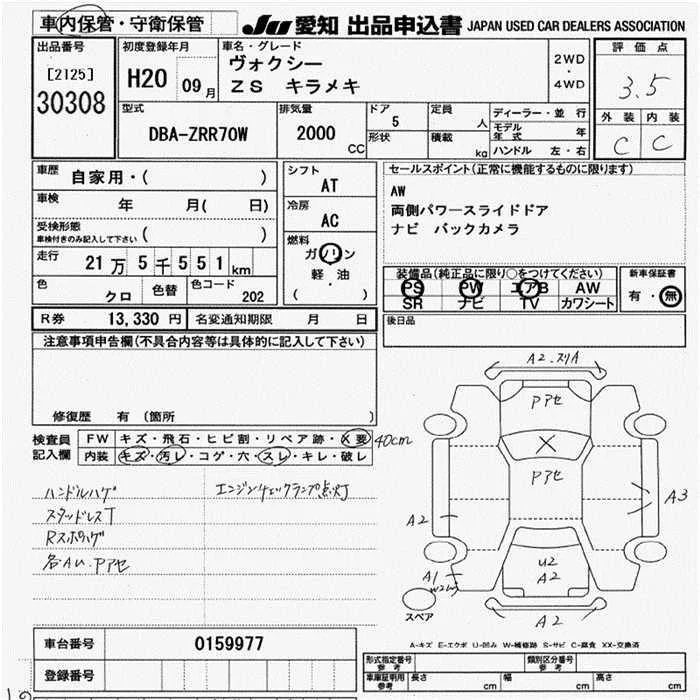 車内保管・守衛保管
JU 愛知 出品申込書 JAPAN USED CAR DEALERS ASSOCIATION
出品番号
[2125]
30308
初度登録年月
H20 09月
車名・グレード
ヴォクシー
ZS キラメキ
2WD
・
4WD
評価点
3.5
外装 内装
C C
型式
DBA-ZRR70W
排気量
2000 CC
ドア
5
形状
定員
人
積載
kg
ディーラー・並行
モデル年式 年
ハンドル 左・右
車歴
自家用・( )
車検
年 月( 日)
受検形態
車検付きのみ記入して下さい ( )
走行
21万5千551km
色
クロ
色替
色コード
202
シフト
AT
冷房
AC
燃料
ガソリン
軽・油
( )
セールスポイント(正常に機能するものに限ります)
AW
両側パワースライドドア
ナビ バックカメラ
装備品(純正品に限り○をつけてください)
PS PW エアB AW
SR ナビ TV カワシート
新車保証書
有・無
R券 13,330円 名変通知期限 月 日
後日品
注意事項申告欄(不具合内容等は具体的に記入して下さい)
修復歴 有 (箇所 )
検査員記入欄
FW キズ・飛石・ヒビ割・リペア跡・X要 40cm
内装 キズ・汚レ・コゲ・穴・スレ・キレ・破レ
ハンドルハゲ
エンジンチェックランプ点灯
スタッドレスT
Rスポハゲ
各AU.Pアセ
A2.スリA
Pアセ
X
Pアセ
A3
A2
U2
A2
A1
W2
スペア
A2
A-キズ E-エクボ U-凹み W-補修跡 S-サビ C-腐食 XX-交換済
車台番号 0159977
登録番号
型式指定番号 参考
類別区分番号 参考
車庫証明用 参考
長さ cm
幅 cm
高さ cm